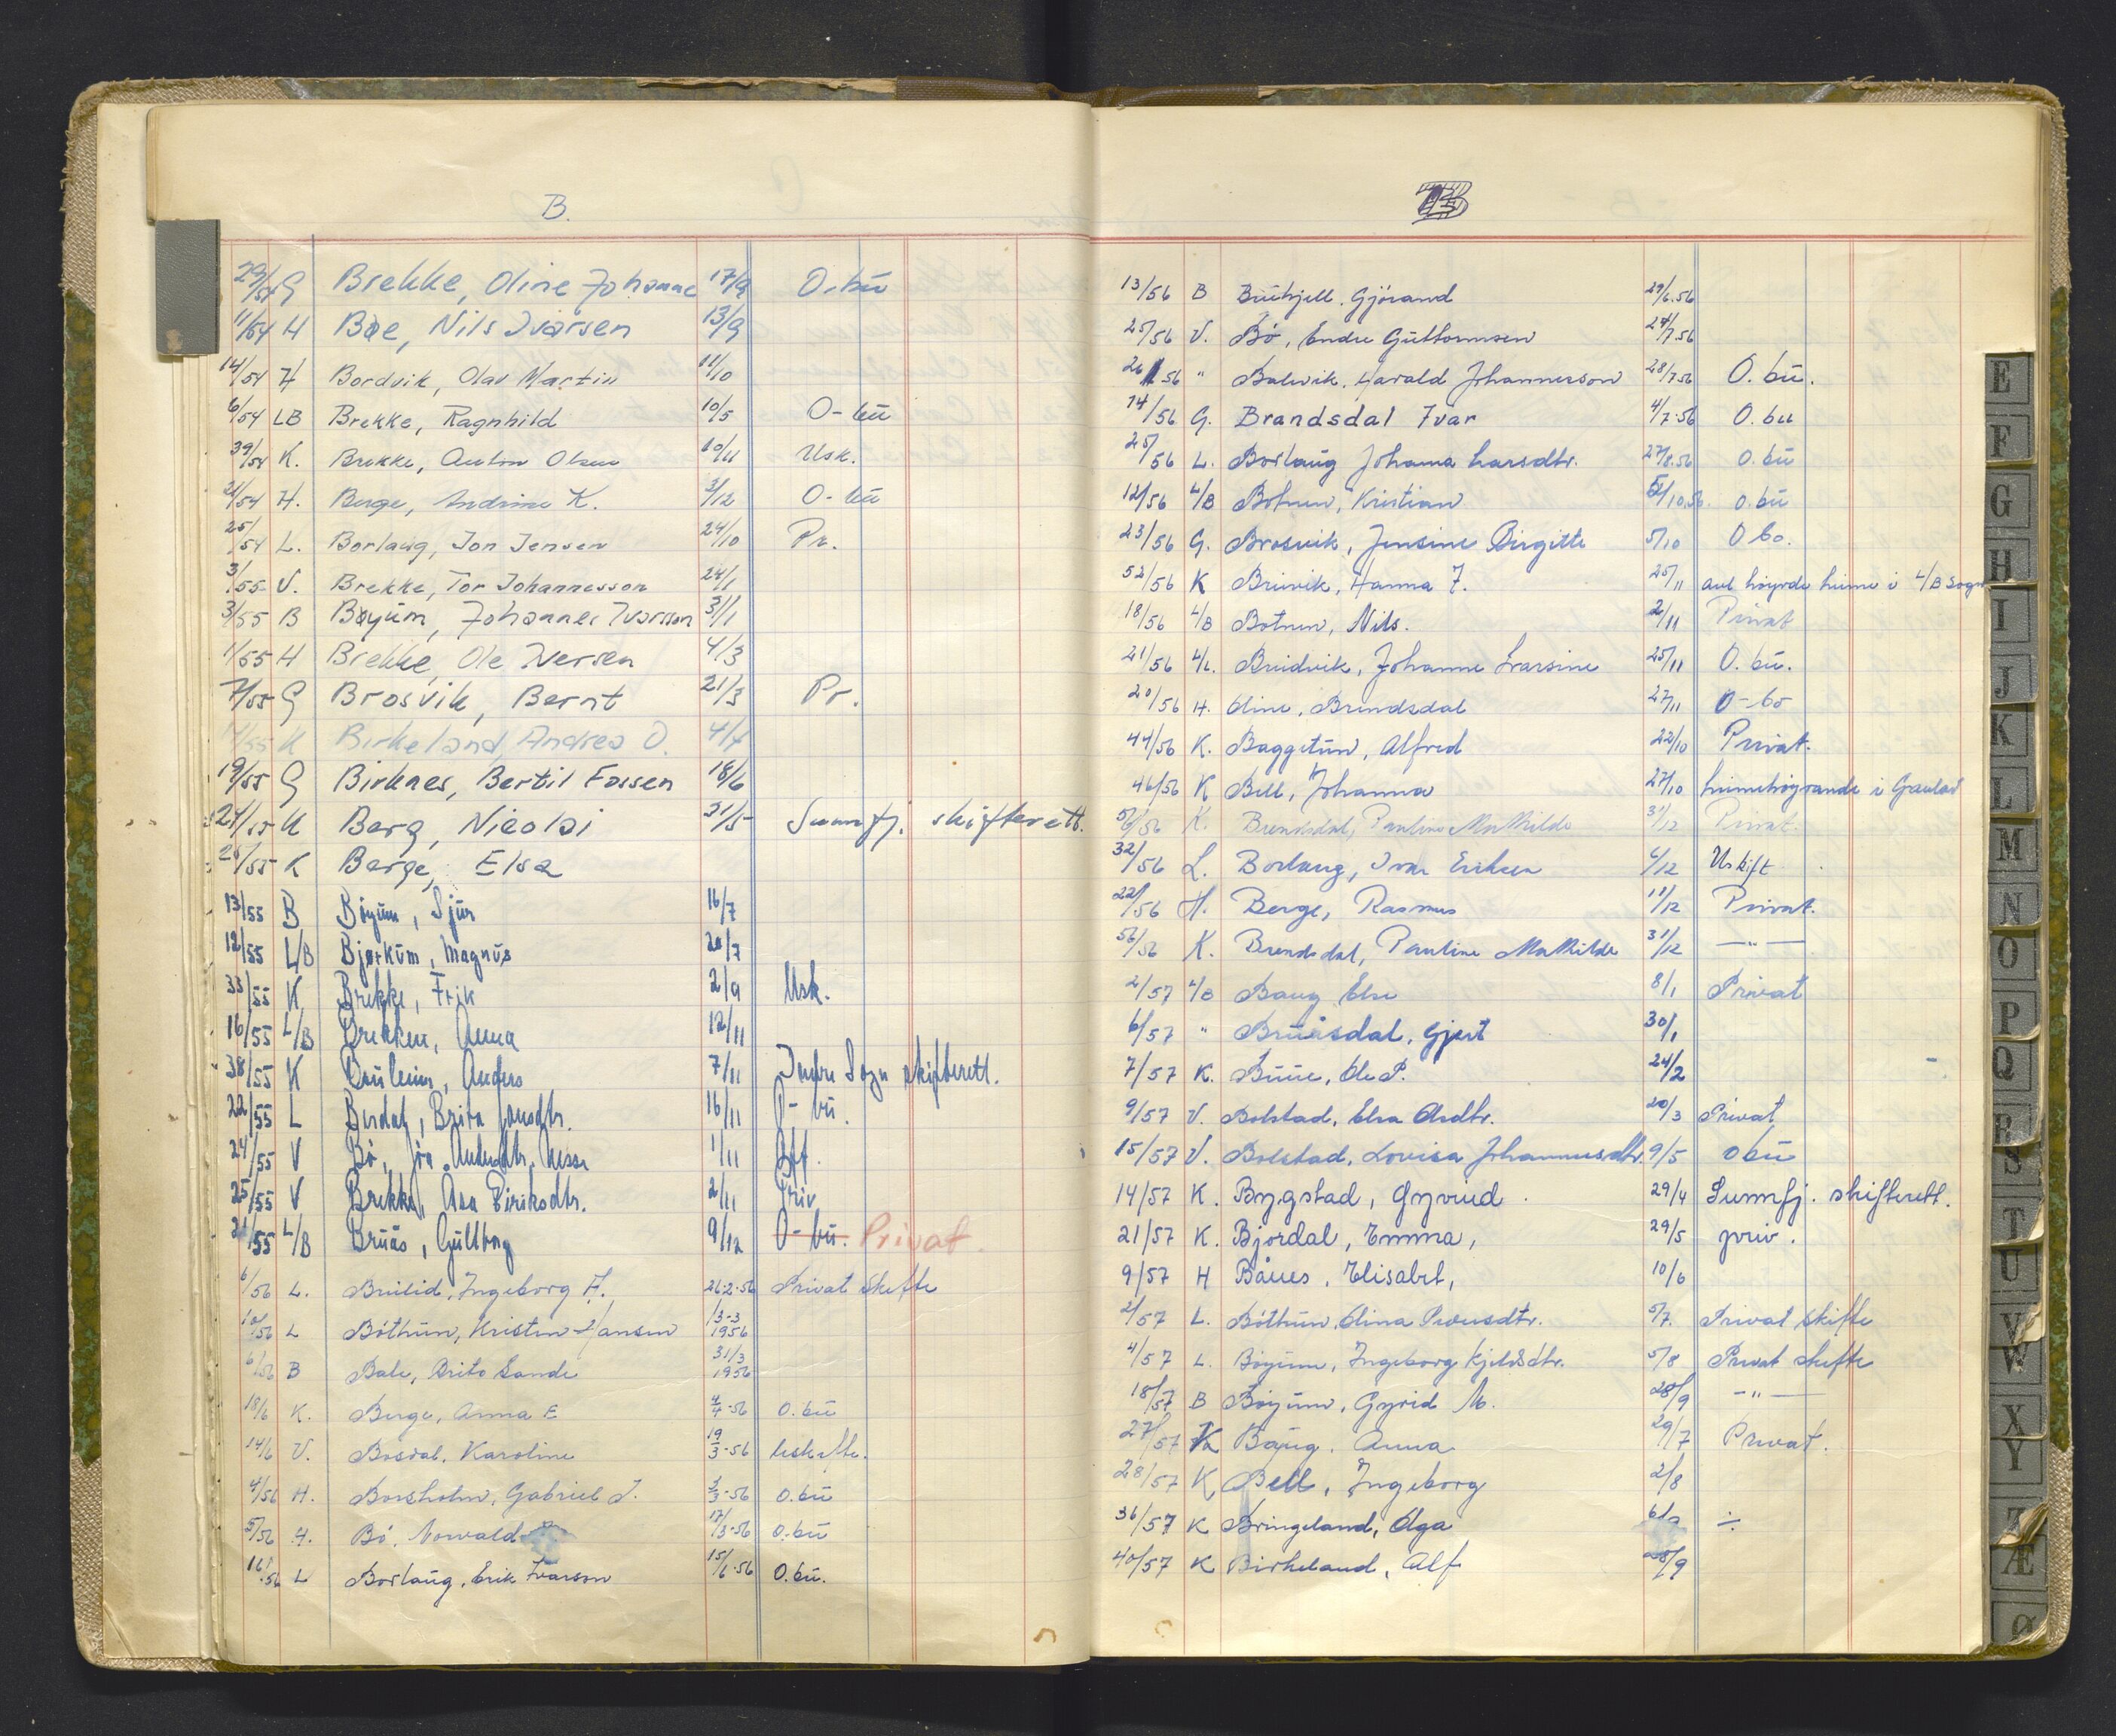 B.
29/54 G Brekke, Oline Johanne 17/9 O.bu
11/54 H Bøe, Nils Ivarsen 13/9
14/54 H Bordvik, Olav Martin 11/10
6/54 LB Brekke, Ragnhild 10/5 O-bu
39/54 K. Brekke, Anton Olsen 10/11 Usk.
21/54 H. Berge, Andrine K. 3/12 O-bu
25/54 L. Borlaug, Jon Jensen 24/10 Pr.
3/55 V. Brekke, Tor Johannesson 24/1
3/55 B Bøyum, Johannes Ivarson 31/1
1/55 H Brekke, Ole Iversen 4/3
7/55 G Brosvik, Bernt 21/3 Pr.
/55 K Birkeland, Andrea O. 4/4
19/55 G Birknes, Bertil Fossen 18/6
24/55 K Berg, Nicolai 31/5 Sunnfj. skifterett.
/55 K Berge, Elsa
13/55 B Bøyum, Sjur 16/7
12/55 L/B Bjørkum, Magnus 20/7
33/55 K Brekke, Erik 2/9 Usk.
16/55 L/B Brekken, Anna 12/11
38/55 K Anders 7/11 Indre Sogn skifterett.
22/55 L Berdal, Brita Jensdtr. 16/11 O-bu.
24/55 V Bø, 1/11
25/55 V Brekke, Åsa Eiriksdtr. 2/11 Priv
21/55 L/B Bruås, Gullborg 9/12 O-bu. Privat.
6/56 L. Breilid, Ingeborg A. 26.2.56 Privat skifte
10/56 L Bøthun, Kristen Hansen 13-3 1956
6/56 B Bale, Brita Sande 31/3 1956
18/6 K. Berge, Anna E 4/4-56 O.bu
14/6 V. Bosdal, Karoline 19/3-56 Uskifte.
4/56 H. Borsholm, Gabriel J. 3/3-56 O.bu
5/56 H. Bø, Norvald 17/3-56 O.bu
16/56 L Borlaug, Erik Ivarson 15/6-56 O.bu.
B
13/56 B Gjørand 29/6.56
25/56 V. Bø, Endre Guttormsen 27/7.56
26/56 " Balevik, Harald Johannesson 28/7.56 O.bu.
14/56 G. Brandsdal Ivar 4/7.56 O.bu
25/56 L. Borlaug Johanna Larsdtr. 27/8.56 O.bu
12/56 L/B Botnen, Kristian 5/10.56. O.bu
23/56 G. Brosvik, Jensine Birgitte 5/10 O bo.
52/56 K Breivik, Hanna J. 25/11 heime i L/B Sogn
18/56 L/B Botnen, Nils. 2/11 Privat
21/56 L/L. Breidvik, Johanne Larsine 25/11 O.bu.
20/56 H. Oline, Brendsdal 27/11 O-bo
44/56 K. Baggetun, Alfred 22/10 Privat.
46/56 K Bell, Johanna 27/10 heimehøyrande i Gaular
56/56 K. Brendsdal, Pauline Mathilde 31/12 Privat.
32/56 L. Borlaug, Ivar Eriksen 6/12 Uskift
22/56 H. Berge, Rasmus 11/12 Privat.
56/56 K. Brendsdal, Pauline Mathilde 31/12 —"—
2/57 L/B Baug Else 8/1 Privat
6/57 " Bruåsdal, Gjert 30/1
7/57 K. Ole P. 24/2
9/57 V. Bolstad, Elsa Olsdtr. 20/3 Privat
15/57 V. Bolstad, Lovisa Johannesdtr. 9/5 O bu
14/57 K. Bygstad, Gyrid. 29/4 Sunnfj. skifterett.
21/57 K. Bjordal, Emma, 29/5 priv.
9/57 H Bånes, Elisabet, 10/6
2/57 L. Bøthun, Olina 5/7. Privat skifte
4/57 L. Bøyum, Ingeborg Kjeldsdtr. 5/8 Privat skifte
18/57 B Bøyum, Gyrid M. 28/9 —"—
27/57 K Baug, Anna 29/7 Privat.
28/57 K Bell, Ingeborg 2/8
36/57 K Bringeland, Olga 6/9 ÷
40/57 K Birkeland, Alf 28/9
E
F
G
H
I
J
K
L
M
N
O
P
Q
R
S
T
U
V
W
X
Y
Z
Æ
Ø